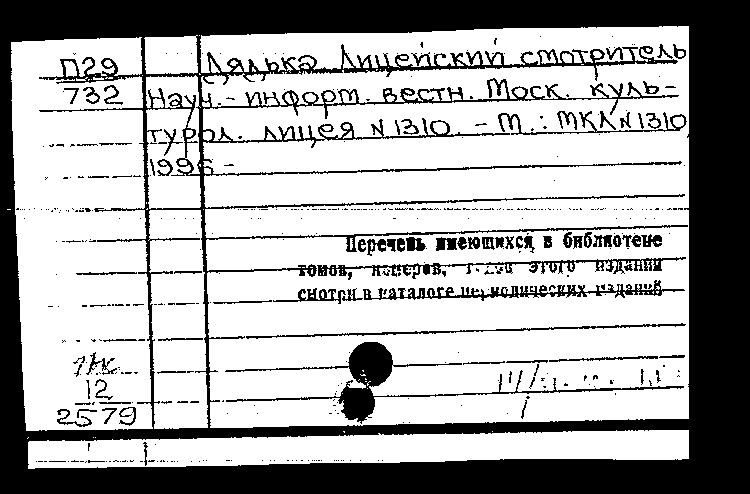 П29 Дядька. Лицейский смотритель
732 Науч.-информ. вестн. Моск. куль-
турол. лицея N1310. - М.: МКЛ N1310,
1996 -
Перечень имеющихся в библиотеке
томов, номеров, годов этого издания
смотри в каталоге периодических изданий
12
2579